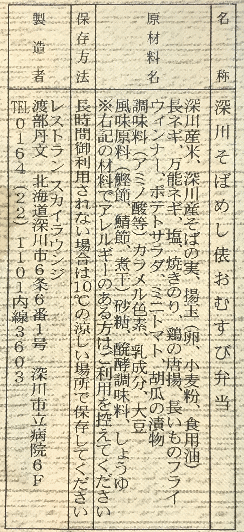 名称
深川そばめし俵おむすび弁当
原材料名
深川産米、深川産そばの実、揚玉(卵、小麦粉、食用油)
長ネギ、万能ネギ、塩、焼きのり、鶏の唐揚、長いものフライ
ウィンナー、ポテトサラダ、ミニトマト、胡瓜の漬物
調味料(アミノ酸等)カラメル色素、乳成分、大豆
風味原料(鰹節、鯖節、煮干)砂糖、醗酵調味料、しょうゆ
※右記の材料でアレルギーのある方はご利用を控えてください
保存方法
長時間御利用されない場合は10℃の涼しい場所で保存してください
製造者
レストラン スカイラウンジ
渡部丹文 北海道深川市6条6番1号 深川市立病院6F
℡0164(22)1101内線3603